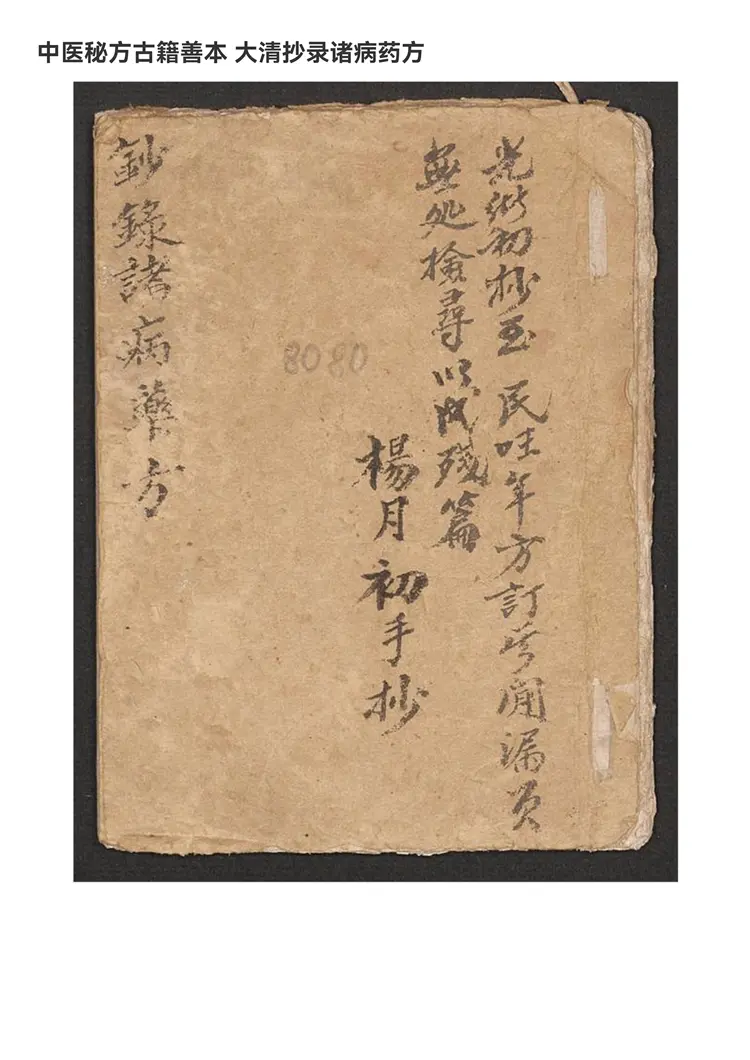 中医秘方古籍善本 大清抄录诸病药方
光初抄至 民年方訂漏
無処檢尋以成殘篇
楊月初手抄
8080
鈔錄諸病藥方